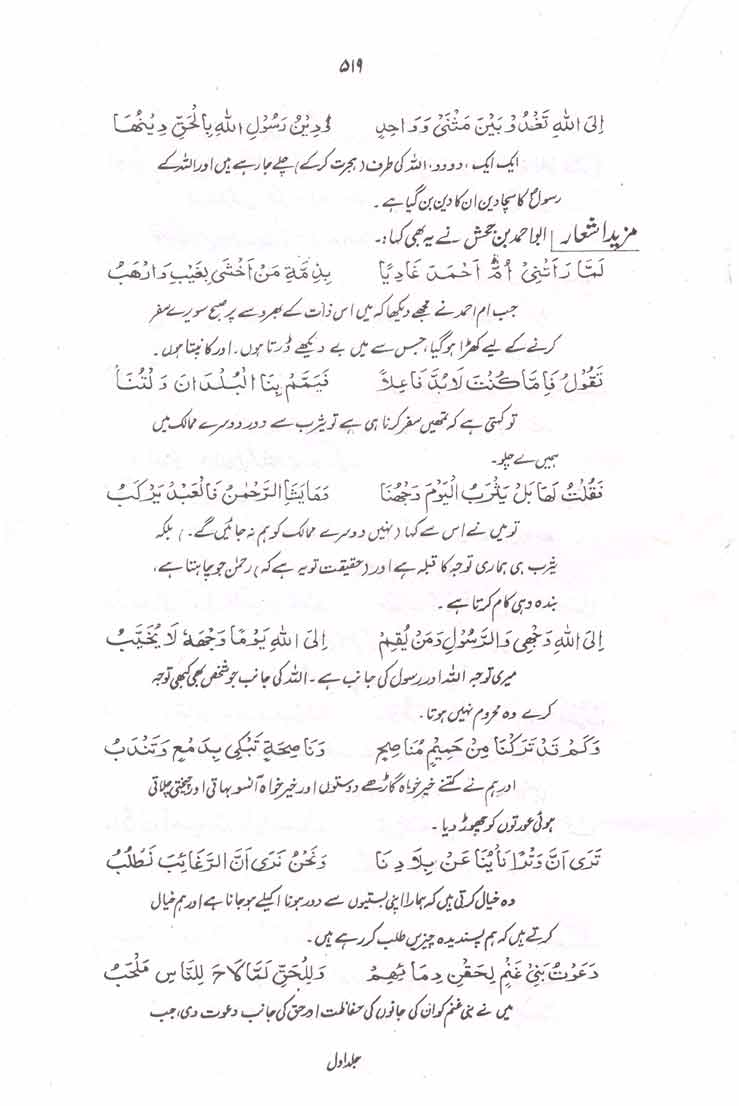 ۵۱۹
اِلَى اللّٰهِ تَغْدُوْ بَيْنَ مَثْنٰى وَوَاحِدٍ وَدِيْنُ رَسُوْلِ اللّٰهِ بِالْحَقِّ دِيْنُهَا
ایک ایک، دو دو، اللہ کی طرف (ہجرت کرکے) چلے جا رہے ہیں اور اللہ کے
رسولؐ کا سچا دین ان کا دین بن گیا ہے۔
مزید اشعار | ابو احمد بن جحش نے یہ بھی کہا:۔
لَمَّا رَاَتْنِيْ اُمُّ اَحْمَدَ غَادِيًا بِذِمَّةِ مَنْ اَخْشٰى بِغَيْبٍ وَاَرْهَبُ
جب ام احمد نے مجھے دیکھا کہ میں اس ذات کے بھروسے پر صبح سویرے سفر
کرنے کے لیے کھڑا ہو گیا، جس سے میں بے دیکھے ڈرتا ہوں۔ اور کانپتا ہوں۔
تَقُوْلُ فَاِمَّا كُنْتَ لَابُدَّ فَاعِلًا فَيَمِّمْ بِنَا الْبُلْدَانَ وَلْتَنْأَ
تو کہتی ہے کہ تمھیں سفر کرنا ہی ہے تو یثرب سے دور دوسرے ممالک میں
ہمیں لے چلو۔
فَقُلْتُ لَهَا بَلْ يَثْرِبُ الْيَوْمَ وَجْهُنَا وَمَا يَشَاِ الرَّحْمٰنُ فَالْعَبْدُ يَرْكَبُ
تو میں نے اس سے کہا (نہیں دوسرے ممالک کو ہم نہ جائیں گے۔) بلکہ
یثرب ہی ہماری توجہ کا قبلہ ہے اور (حقیقت تو یہ ہے کہ) رحمٰن جو چاہتا ہے،
بندہ وہی کام کرتا ہے۔
اِلَى اللّٰهِ وَجْهِيْ وَالرَّسُوْلِ وَمَنْ يُقِمْ اِلَى اللّٰهِ يَوْمًا وَجْهَهٗ لَا يُخَيَّبُ
میری توجہ اللہ اور رسول کی جانب ہے۔ اللہ کی جانب جو شخص بھی کبھی توجہ
کرے وہ محروم نہیں ہوتا۔
وَكَمْ قَدْ تَرَكْنَا مِنْ حَمِيْمٍ مُنَاصِحٍ وَنَاصِحَةٍ تَبْكِيْ بِدَمْعٍ وَتَنْدُبُ
اور ہم نے کتنے خیر خواہ گاڑھے دوستوں اور خیر خواہ آنسو بہاتی اور چیختی چلاتی
ہوئی عورتوں کو چھوڑ دیا۔
تَرٰى اَنَّ وِتْرًا نَأْيُنَا عَنْ بِلَادِنَا وَنَحْنُ نَرٰى اَنَّ الرَّغَائِبَ نَطْلُبُ
وہ خیال کرتی ہیں کہ ہمارا اپنی بستیوں سے دور ہونا اکیلے ہو جانا ہے اور ہم خیال
کرتے ہیں کہ ہم پسندیدہ چیزیں طلب کر رہے ہیں۔
دَعَوْتُ بَنِيْ غَنْمٍ لِحَقْنِ دِمَائِهِمْ وَلِلْحَقِّ لَمَّا لَاحَ لِلنَّاسِ مَلْحَبُ
میں نے بنی غنم کو ان کی جانوں کی حفاظت اور حق کی جانب دعوت دی، جب
جلد اول